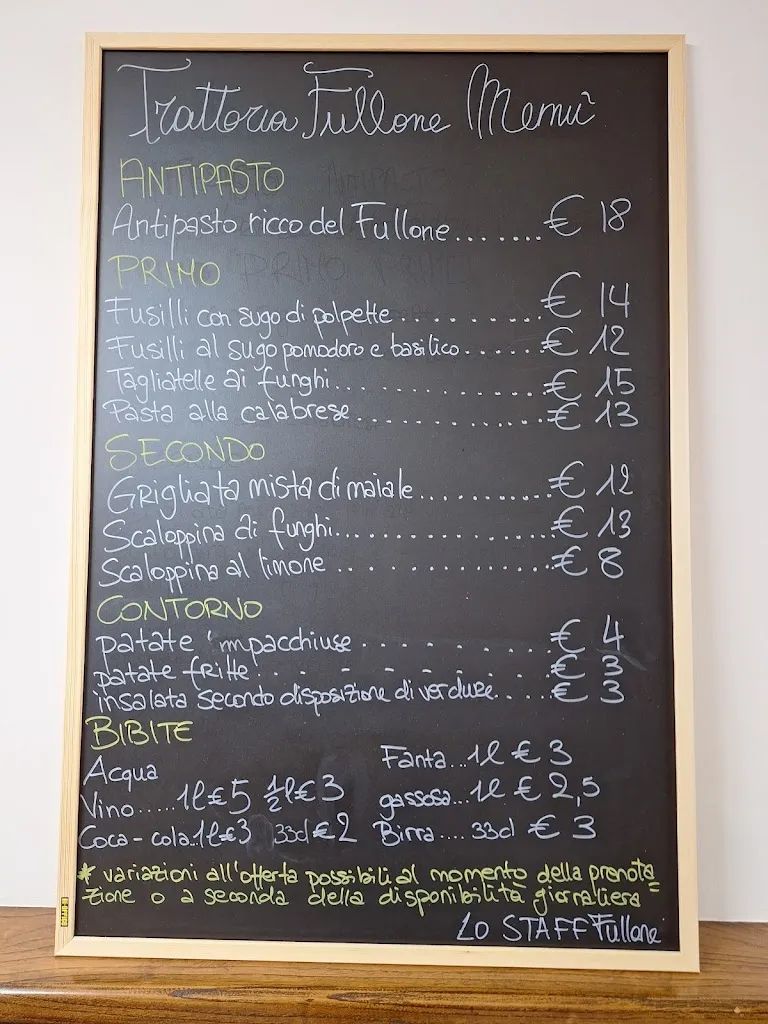 Trattoria Fullone Menù
ANTIPASTO
Antipasto ricco del Fullone....... € 18
PRIMO
Fusilli con sugo di polpette......... € 14
Fusilli al sugo pomodoro e basilico....... € 12
Tagliatelle ai funghi............ € 15
Pasta alla calabrese............ € 13
SECONDO
Grigliata mista di maiale.......... € 12
Scaloppina ai funghi............. € 13
Scaloppina al limone............. € 8
CONTORNO
patate 'mpacchiuse......... € 4
patate fritte.......... € 3
insalata secondo disposizione di verdure..... € 3
BIBITE
Acqua
Vino......1l € 5 ½l € 3
Coca-cola..1l € 3 33cl € 2
Fanta...1l € 3
gassosa...1l € 2,5
Birra.... 33cl € 3
* variazioni all'offerta possibili al momento della prenota=
zione o a seconda della disponibilità giornaliera
Lo STAFF Fullone